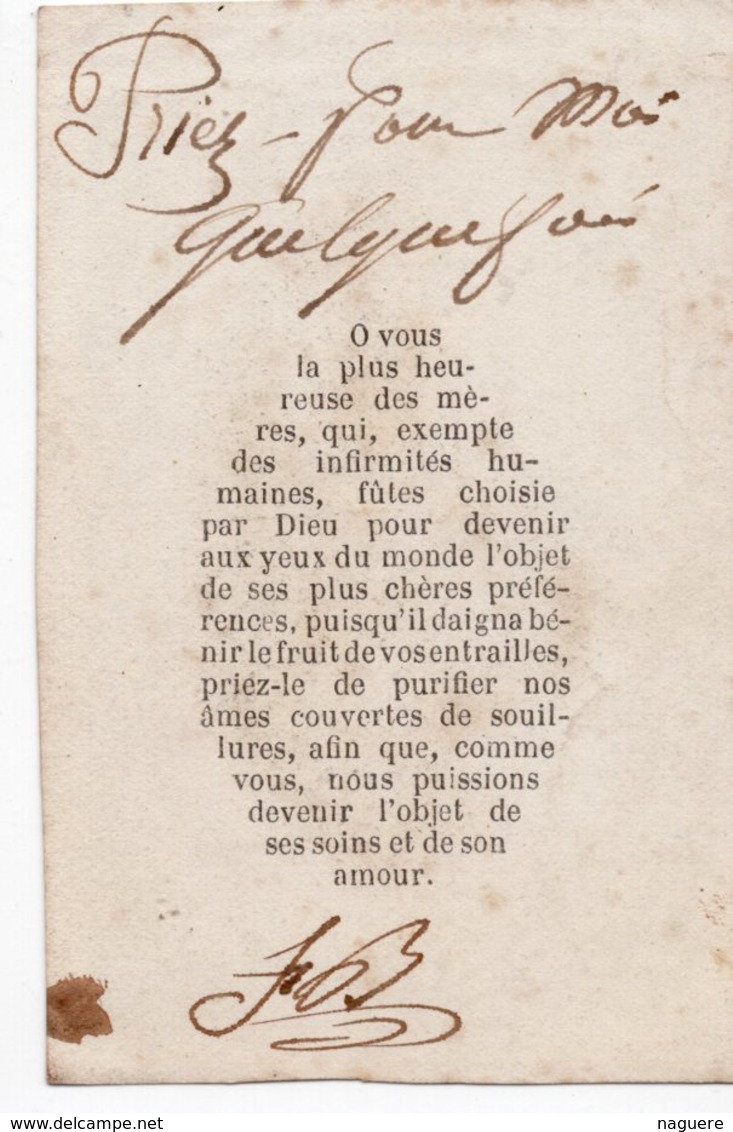 Priez - Pour Moi
quelquefois
O vous
la plus heu-
reuse des mè-
res, qui, exempte
des infirmités hu-
maines, fûtes choisie
par Dieu pour devenir
aux yeux du monde l'objet
de ses plus chères préfé-
rences, puisqu'il daigna bé-
nir le fruit de vos entrailles,
priez-le de purifier nos
âmes couvertes de souil-
lures, afin que, comme
vous, nous puissions
devenir l'objet de
ses soins et de son
amour.
naguere